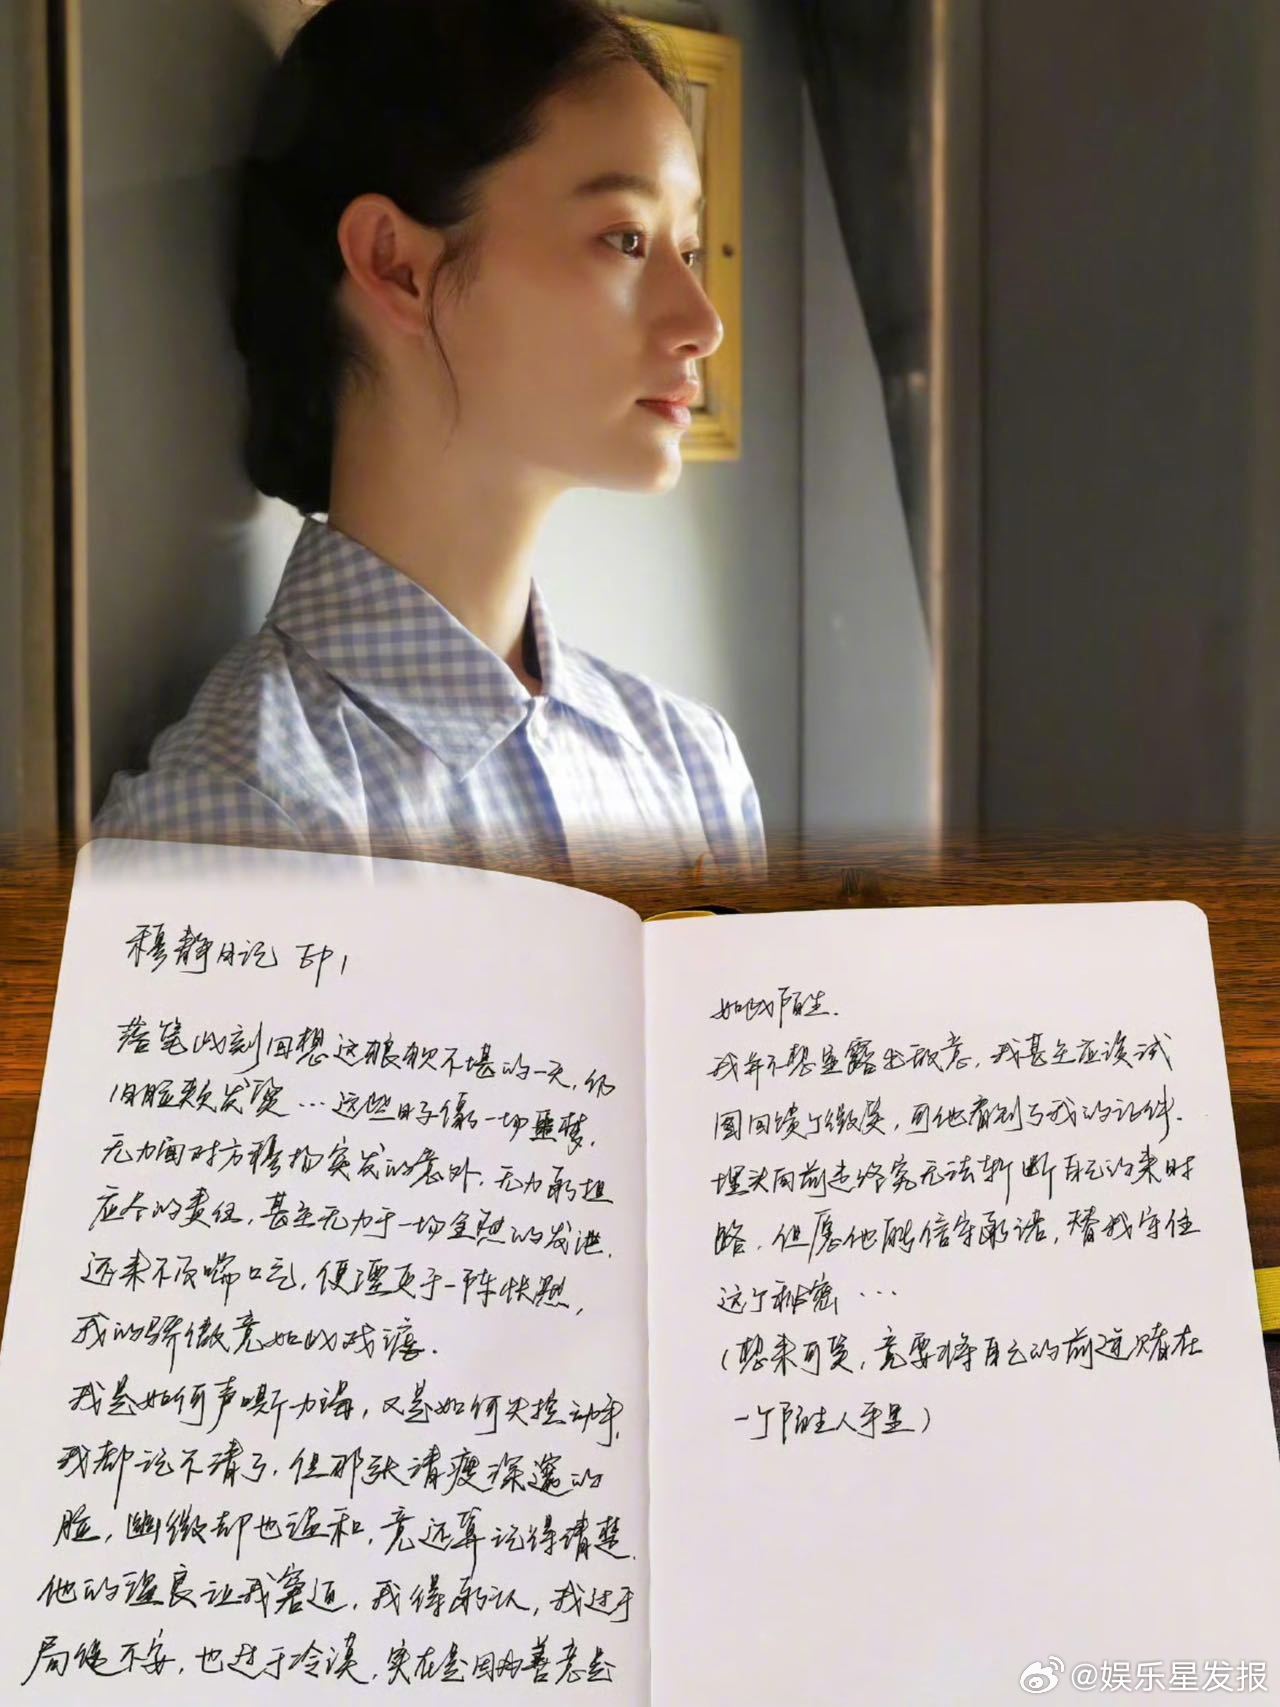 穆静日记 EP1
落笔此刻回想这狼狈不堪的一天,仍
旧脸颊发烫…这些日子像一场噩梦,
无力面对方穆扬突发的意外,无力承担
应尽的责任,甚至无力于一场坐立的发泄,
还来不及喘口气,便湮灭于一阵快
我的骄傲竟如此残
我是如何声嘶力竭,又是如何失控动手,
我都记不清了,但那张清瘦深邃的
脸,幽微却也温和,竟还算记得清楚.
他的温良让我窘迫,我得承认,我过于
局促不安,也过于冷漠,实在是因为善意是
如此陌生.
我并不想显露出敌意,我甚至应该试
图回馈个微笑,可他看到了我的证件.
埋头向前走终究无法斩断自己的来时
路,但愿他能信守承诺,替我守住
这个秘密…
(想来可笑,竟要将自己的前途赌在
一个陌生人手里)
@娱乐星发报